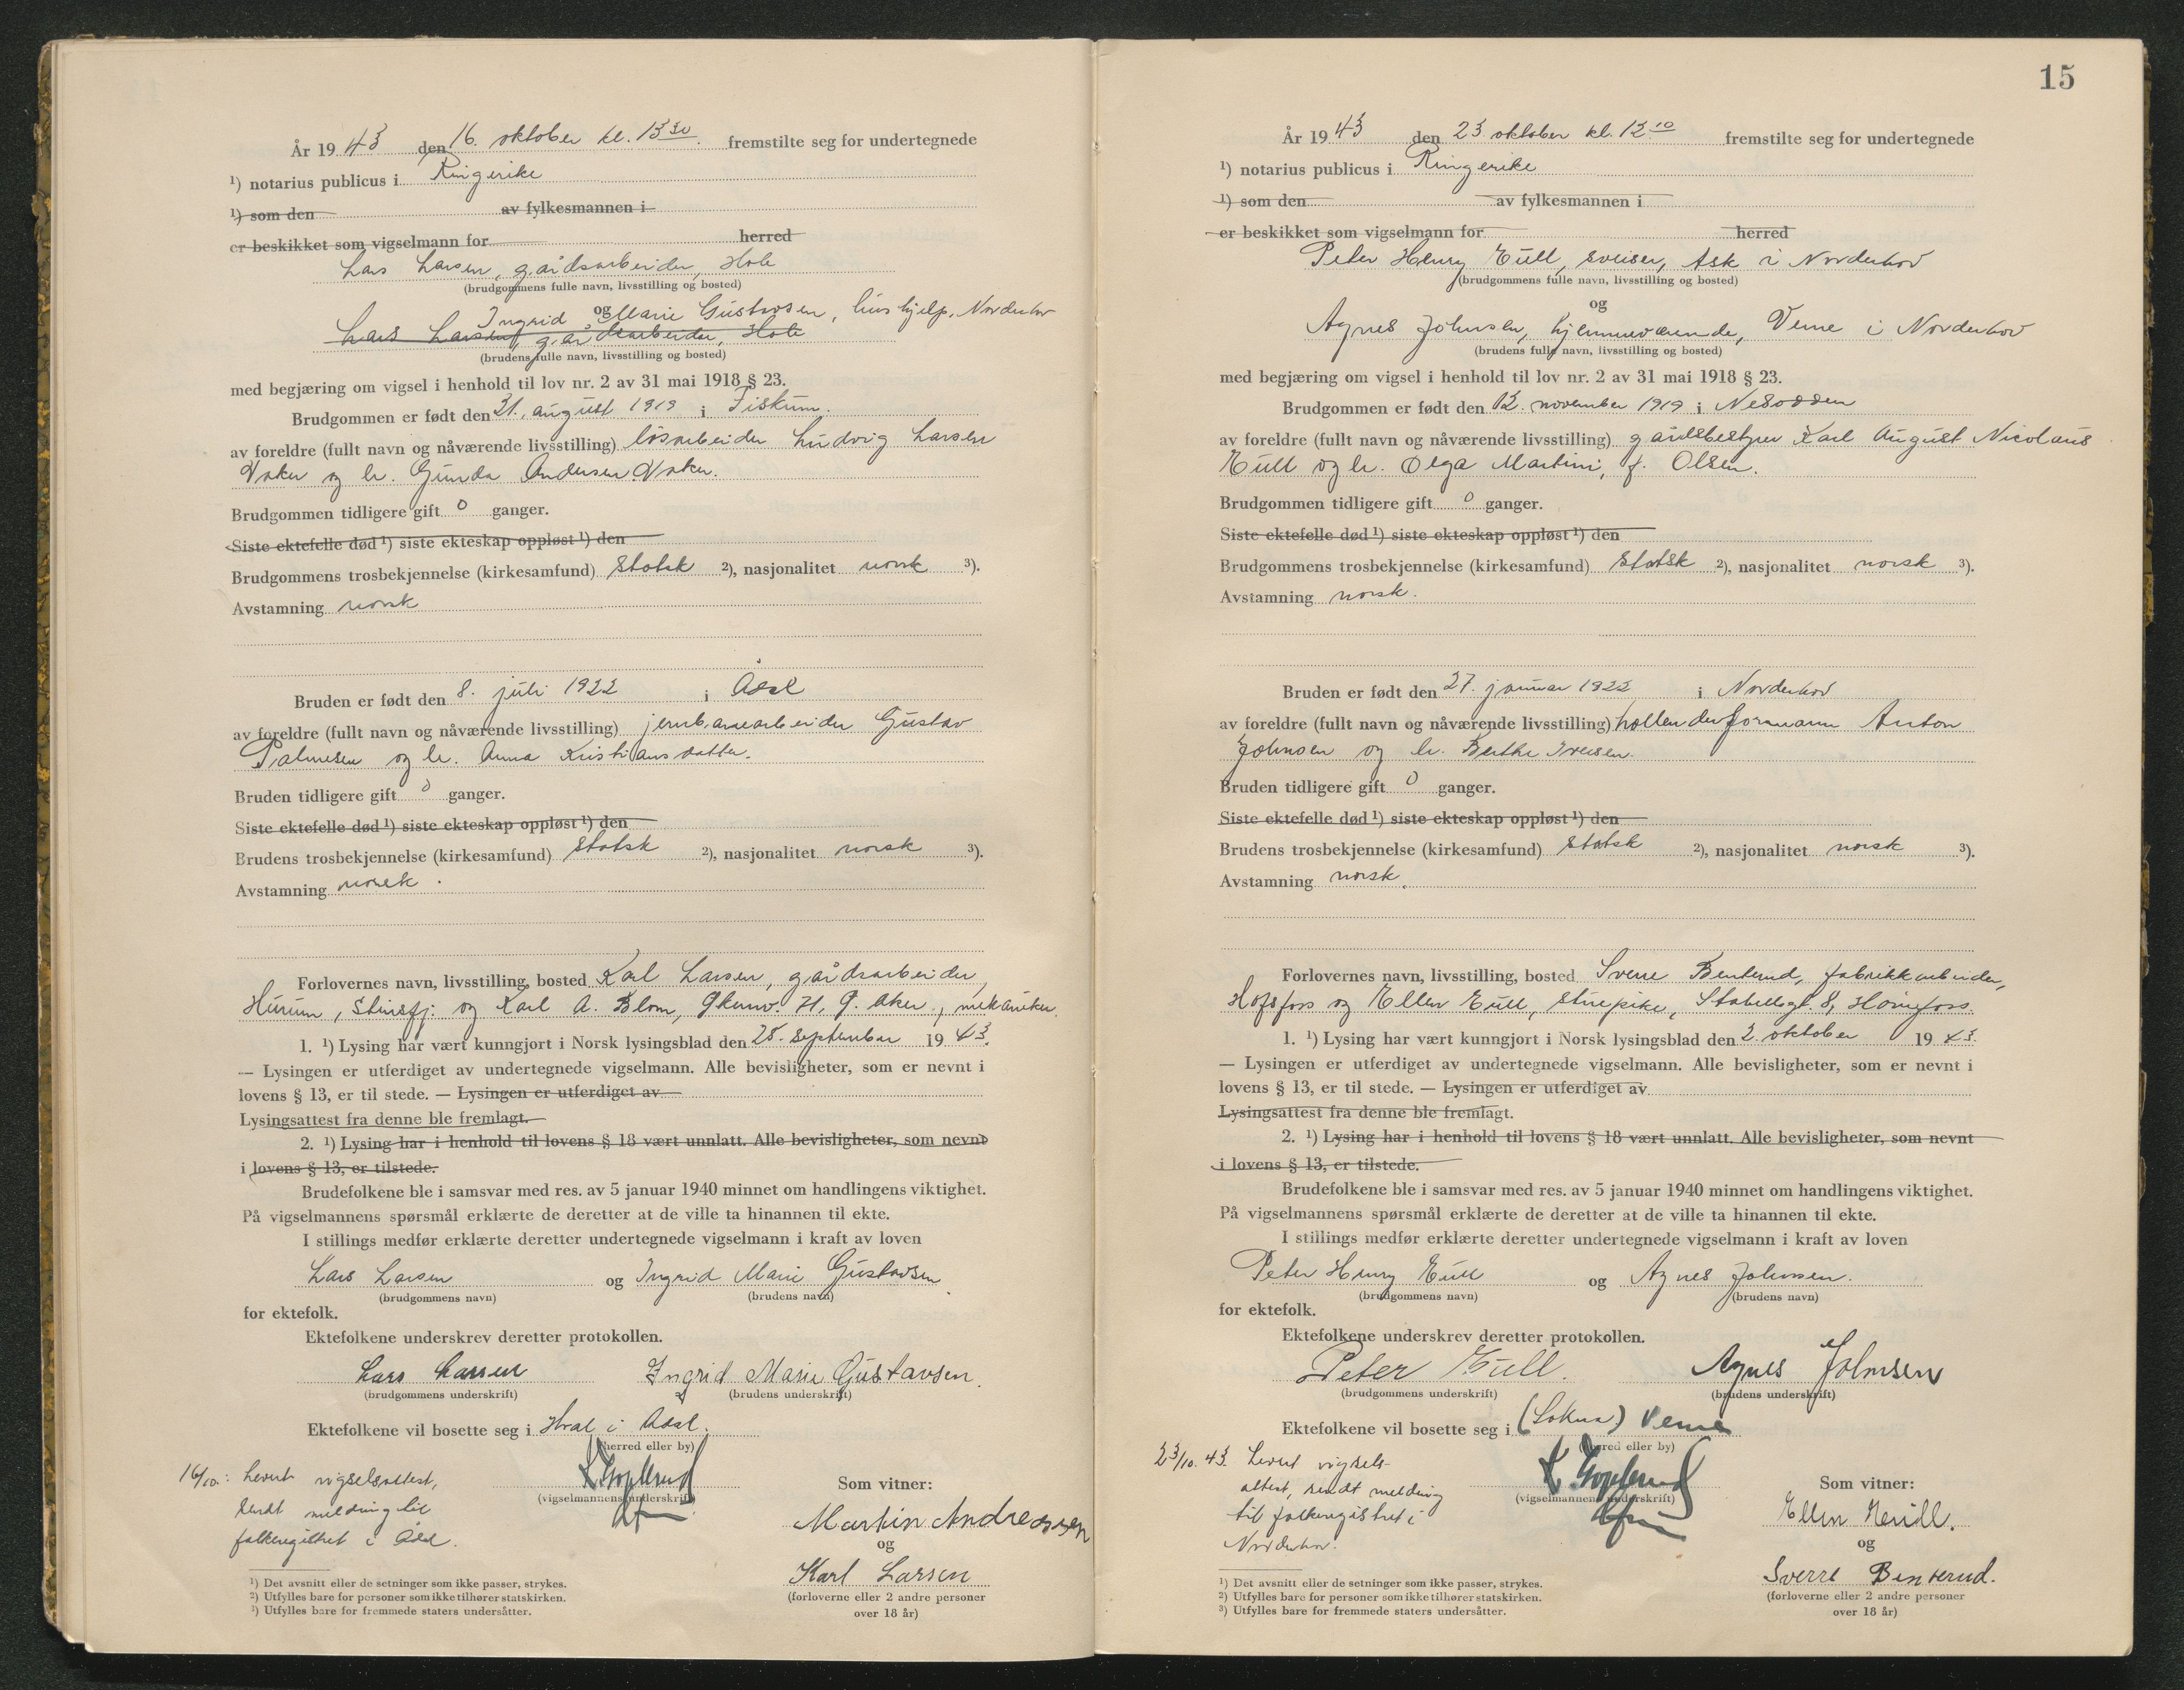 År 1943 den 16. oktober kl. 13 30. fremstilte seg for undertegnede
1) notarius publicus i Ringerike
1) som den av fylkesmannen i
er beskikket som vigselmann for herred
Lars Larsen, gårdsarbeider, Hole
(brudgommens fulle navn, livsstilling og bosted)
og
Ingrid Marie Gustavsen, hushjelp, Norderhov
Lars Larsen, gårdsarbeider, Hole
(brudens fulle navn, livsstilling og bosted)
med begjæring om vigsel i henhold til lov nr. 2 av 31 mai 1918 § 23.
Brudgommen er født den 21. august 1919 i Fiskum.
av foreldre (fullt navn og nåværende livsstilling) løsarbeider Ludvig Larsen
Vaker og h. Gunda Andersen Vaker.
Brudgommen tidligere gift 0 ganger.
Siste ektefelle død 1) siste ekteskap oppløst 1) den
Brudgommens trosbekjennelse (kirkesamfund) Statsk 2), nasjonalitet norsk 3).
Avstamning norsk
Bruden er født den 8. juli 1922 i Ådal
av foreldre (fullt navn og nåværende livsstilling) jernbanearbeider Gustav
Palmesen og h. Anna Kristiansdatter.
Bruden tidligere gift 0 ganger.
Siste ektefelle død 1) siste ekteskap oppløst 1) den
Brudens trosbekjennelse (kirkesamfund) Statsk 2), nasjonalitet norsk 3).
Avstamning norsk.
Forlovernes navn, livsstilling, bosted Karl Larsen, gårdsarbeider,
Hurum, Steinsfj. og Karl A. Blom, H. g. Aker, mekaniker.
1. 1) Lysing har vært kunngjort i Norsk lysingsblad den 28. september 1943.
— Lysingen er utferdiget av undertegnede vigselmann. Alle bevisligheter, som er nevnt i
lovens § 13, er til stede. — Lysingen er utferdiget av
Lysingsattest fra denne ble fremlagt.
2. 1) Lysing har i henhold til lovens § 18 vært unnlatt. Alle bevisligheter, som nevnt
i lovens § 13, er tilstede.
Brudefolkene ble i samsvar med res. av 5 januar 1940 minnet om handlingens viktighet.
På vigselmannens spørsmål erklærte de deretter at de ville ta hinannen til ekte.
I stillings medfør erklærte deretter undertegnede vigselmann i kraft av loven
Lars Larsen og Ingrid Marie Gustavsen
(brudgommens navn) (brudens navn)
for ektefolk.
Ektefolkene underskrev deretter protokollen.
Lars Larsen Ingrid Marie Gustavsen.
(brudgommens underskrift) (brudens underskrift)
Ektefolkene vil bosette seg i Hval i Ådal.
(herred eller by)
16/10: Levert vigselsattest,
sendt melding til
folkeregistret i Ådal.
(vigselmannens underskrift)
Som vitner:
Martin Andressen
og
Karl Larsen
(forloverne eller 2 andre personer
over 18 år)
1) Det avsnitt eller de setninger som ikke passer, strykes.
2) Utfylles bare for personer som ikke tilhører statskirken.
3) Utfylles bare for fremmede staters undersåtter.
15
År 1943 den 23 oktober kl. 12 10 fremstilte seg for undertegnede
1) notarius publicus i Ringerike
1) som den av fylkesmannen i
er beskikket som vigselmann for herred
Peter Henry Eull, sveiser, Ask i Norderhov
(brudgommens fulle navn, livsstilling og bosted)
og
Agnes Johnsen, hjemmeværende, Veme i Norderhov
(brudens fulle navn, livsstilling og bosted)
med begjæring om vigsel i henhold til lov nr. 2 av 31 mai 1918 § 23.
Brudgommen er født den 12. november 1919 i Nesodden
av foreldre (fullt navn og nåværende livsstilling) gårdsbestyrer Karl August Nicolaus
Eull og h. Olga Martini, f. Olsen.
Brudgommen tidligere gift 0 ganger.
Siste ektefelle død 1) siste ekteskap oppløst 1) den
Brudgommens trosbekjennelse (kirkesamfund) Statsk 2), nasjonalitet norsk 3).
Avstamning norsk.
Bruden er født den 27. januar 1922 i Norderhov
av foreldre (fullt navn og nåværende livsstilling) hollenderformann Anton
Johnsen og h. Berthe Iversen.
Bruden tidligere gift 0 ganger.
Siste ektefelle død 1) siste ekteskap oppløst 1) den
Brudens trosbekjennelse (kirkesamfund) Statsk 2), nasjonalitet norsk 3).
Avstamning norsk.
Forlovernes navn, livsstilling, bosted Sverre Benterud, fabrikkarbeider,
Hofsfoss og Ellen Eull, stuepike, Stabellsgt. 8, Hønefoss.
1. 1) Lysing har vært kunngjort i Norsk lysingsblad den 2. oktober 1943.
— Lysingen er utferdiget av undertegnede vigselmann. Alle bevisligheter, som er nevnt i
lovens § 13, er til stede. — Lysingen er utferdiget av
Lysingsattest fra denne ble fremlagt.
2. 1) Lysing har i henhold til lovens § 18 vært unnlatt. Alle bevisligheter, som nevnt
i lovens § 13, er tilstede.
Brudefolkene ble i samsvar med res. av 5 januar 1940 minnet om handlingens viktighet.
På vigselmannens spørsmål erklærte de deretter at de ville ta hinannen til ekte.
I stillings medfør erklærte deretter undertegnede vigselmann i kraft av loven
Peter Henry Eull og Agnes Johnsen.
(brudgommens navn) (brudens navn)
for ektefolk.
Ektefolkene underskrev deretter protokollen.
Peter Eull. Agnes Johnsen
(brudgommens underskrift) (brudens underskrift)
Ektefolkene vil bosette seg i (Sokna) Veme
(herred eller by)
23/10.43. Levert vigsels-
attest, sendt melding
til folkeregistret i
Norderhov.
(vigselmannens underskrift)
Som vitner:
Ellen
og
Sverre Benterud.
(forloverne eller 2 andre personer
over 18 år)
1) Det avsnitt eller de setninger som ikke passer, strykes.
2) Utfylles bare for personer som ikke tilhører statskirken.
3) Utfylles bare for fremmede staters undersåtter.